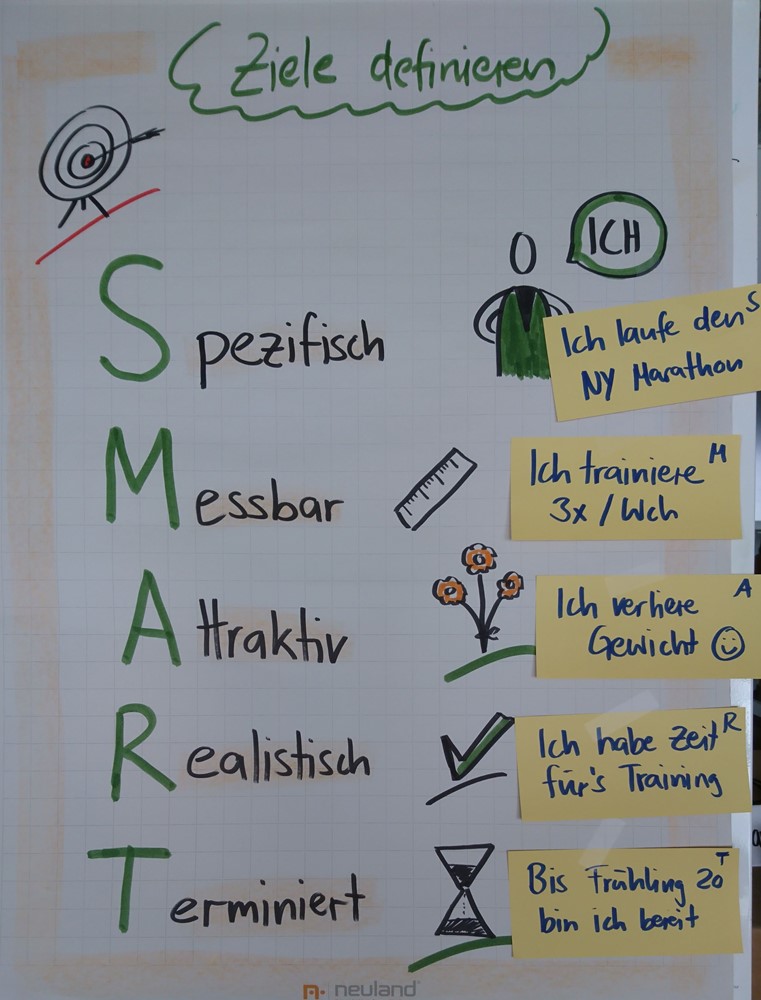 Ziele definieren
ICH
Spezifisch
Ich laufe den S
NY Marathon
Messbar
Ich trainiere M
3x / Wch
Attraktiv
Ich verliere A
Gewicht
Realistisch
Ich habe Zeit R
für's Training
Terminiert
Bis Frühling 20 T
bin ich bereit
neuland